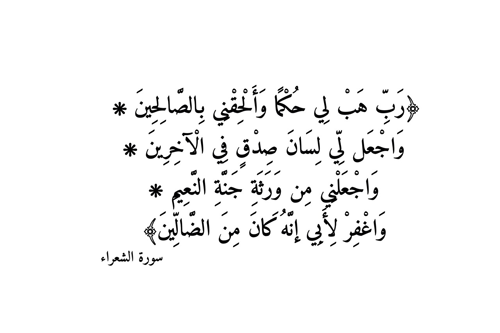 ﴿رَبِّ هَبْ لِي حُكْمًا وَأَلْحِقْنِي بِالصَّالِحِينَ *
وَاجْعَل لِّي لِسَانَ صِدْقٍ فِي الْآخِرِينَ *
وَاجْعَلْنِي مِن وَرَثَةِ جَنَّةِ النَّعِيمِ *
وَاغْفِرْ لِأَبِي إِنَّهُ كَانَ مِنَ الضَّالِّينَ﴾
سورة الشعراء